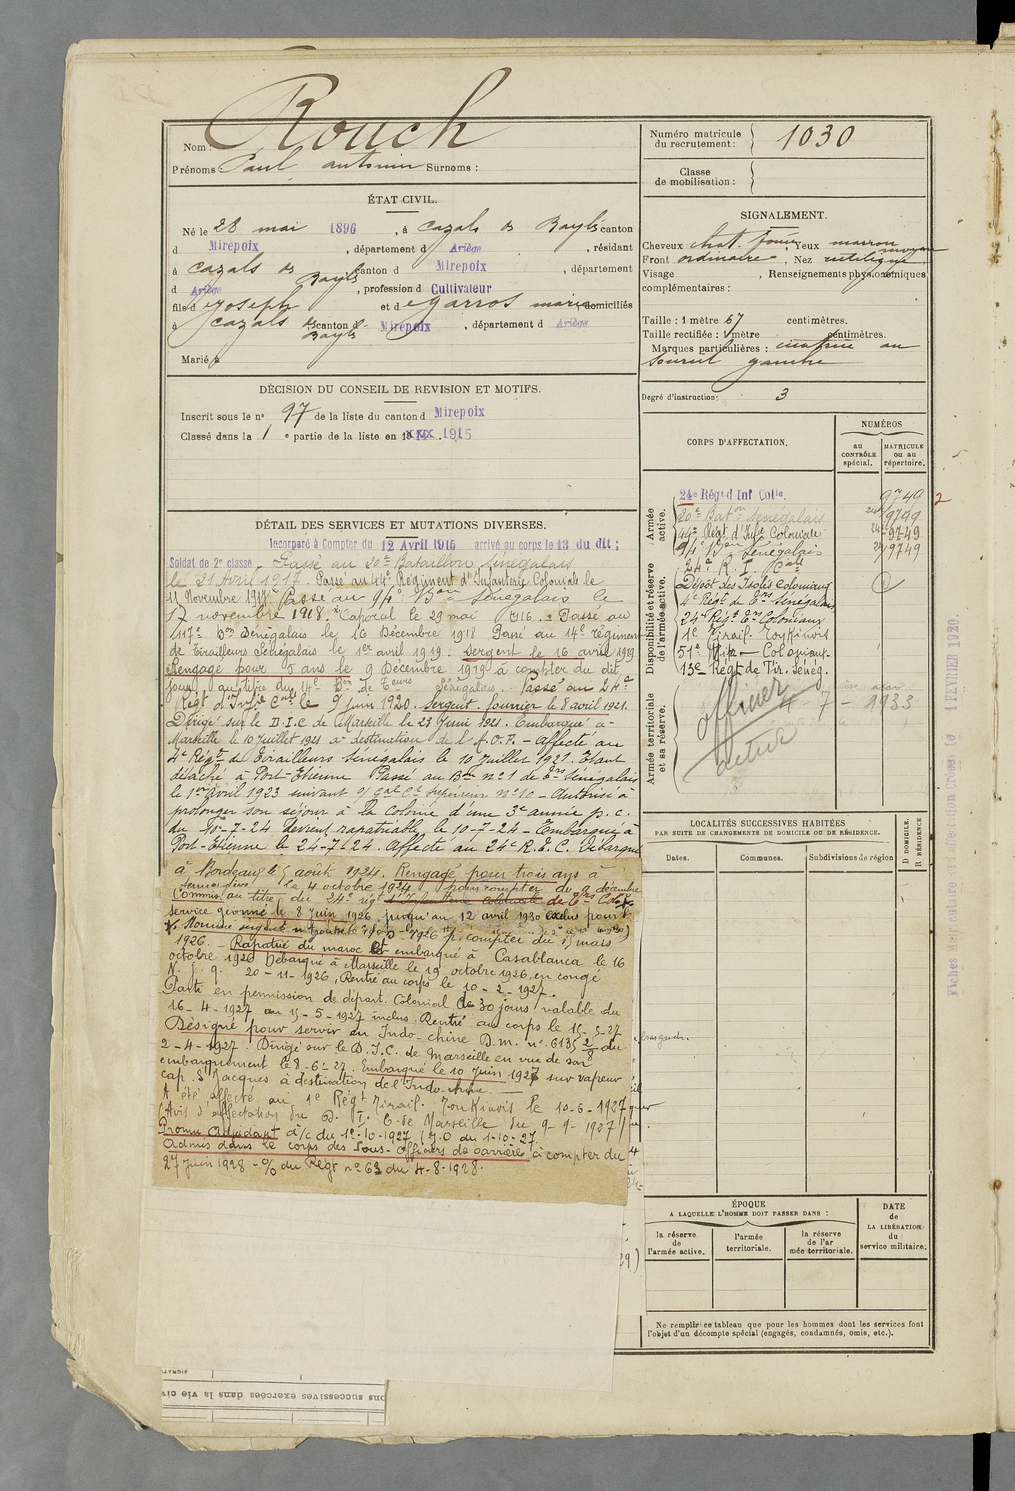 Nom : Rouch
Prénoms Paul antonin Surnoms :
Numéro matricule
du recrutement : 1030
Classe
de mobilisation :
ÉTAT CIVIL.
Né le 28 mai 1896, à Cazals des Bayls canton
d Mirepoix, département d Ariège, résidant
à Cazals des Bayls canton d Mirepoix, département
d Ariège, profession d Cultivateur
fils d Joseph et d Garros marie domiciliés
à Cazals des Bayls canton d Mirepoix, département d Ariège
Marié à
SIGNALEMENT.
Cheveux chat. foncé, Yeux marron
Front ordinaire, Nez rectiligne moyen
Visage , Renseignements physionomiques
complémentaires :
Taille : 1 mètre 67 centimètres.
Taille rectifiée : 1 mètre centimètres.
Marques particulières : cicatrice au
sourcil gauche
Degré d'instruction : 3
DÉCISION DU CONSEIL DE REVISION ET MOTIFS.
Inscrit sous le n° 97 de la liste du canton d Mirepoix
Classé dans la 1 e partie de la liste en 1915
DÉTAIL DES SERVICES ET MUTATIONS DIVERSES.
Incorporé à Compter du 12 Avril 1915 arrivé au corps le 13 du dit ;
Soldat de 2e classe. Passé au 20e Bataillon Sénégalais
le 21 Avril 1917. Passé au 44e Régiment d'Infanterie Coloniale le
11 Novembre 1917. Passé au 94e Bon Sénégalais le
17 novembre 1918. Caporal le 29 mai 1916. Passé au
117e Bon Sénégalais le 16 Décembre 1918 Passé au 14e régiment
de Tirailleurs Sénégalais le 1er avril 1919. Sergent le 16 avril 1919
Rengagé pour 5 ans le 9 Décembre 1919 à compter du dit
jour au titre du 14e Bon de Teurs Sénégalais. Passé au 24e
Régt d'Infie Cale le 9 juin 1920. Sergent fourrier le 8 avril 1921.
Dirigé sur le D.I.C de Marseille le 27 Juin 1921. Embarqué à
Marseille le 10 Juillet 1921 à destination de l'A.O.F. - Affecté au
4e Régt de Tirailleurs Sénégalais le 10 Juillet 1921. Etant
détaché à Port-Etienne Passé au Bon n° 1 de Trs Sénégalais
le 1er avril 1923 suivant o/ Gal Ct Supérieur n° 10 - Autorisé à
prolonger son séjour à la Colonie d'une 3e année p. c.
du 10-7-24 devient rapatriable le 10-7-24 - Embarqué à
Port-Etienne le 24-7-24. Affecté au 24e R.T.C. Débarqué
à Bordeaux le 5 août 1924. Rengagé pour trois ans à
le 4 octobre 1924, pour compter du 9 décembre
au titre du 24e régt d'Infanterie Coloniale de Trs Col.
service le 8 juin 1926, jusqu'au 12 avril 1930 exclus pour
1926. - Rapatrié du maroc et embarqué à Casablanca le 16
octobre 1926 Débarqué à Marseille le 19 octobre 1926, en congé
20-11-1926, Rentré au corps le 10-2-1927.
Parti en permission de départ. Colonial de 30 jours valable du
16-4-1927 au 15-5-1927 inclus. Rentré au corps le 15-5-27
Désigné pour servir en Indo-chine D.M. n° 6135 2/8 du
2-4-1927. Dirigé sur le D.I.C. de Marseille en vue de son
embarquement le 8-6-27. Embarqué le 10 Juin 1927 sur vapeur
cap. St Jacques à destination de l'Indo-chine.
A été affecté au 1e Régt Tirail. Tonkinois le 10-6-1927
(Avis d'affectation du D. I. C. de Marseille du 9-9-1927)
Promu Adjudant à/c du 1e-10-1927 (J.O du 1-10-27.
Admis dans le corps des Sous-Officiers de carrière à compter du
27 Juin 1928 - % du Régt n° 63 du 4-8-1928.
CORPS D'AFFECTATION.
NUMÉROS
au
CONTRÔLE
spécial.
MATRICULE
ou au
répertoire.
Armée
active.
24e Régt d'Inf Colle. 9749 2
20e Baton Sénégalais 24 9749
44e Régt d'Infie Coloniale 24 9749
94e Bon Sénégalais 24 9749
Disponibilité et réserve
de l'armée active.
24e R. I. Cale
Dépôt des Isolés Coloniaux
4e Régt de Trs Sénégalais
24e Régt Trs Coloniaux
1e Tirail. Tonkinois
51e Mip - Coloniaux
13e Régt de Tir. Sénég.
Armée territoriale
et sa réserve.
officier
4 - 7 - 1933
active
LOCALITÉS SUCCESSIVES HABITÉES
PAR SUITE DE CHANGEMENTS DE DOMICILE OU DE RÉSIDENCE.
D DOMICILE.
R RÉSIDENCE
Dates.
Communes.
Subdivisions de région
ÉPOQUE
A LAQUELLE L'HOMME DOIT PASSER DANS :
DATE
de
LA LIBÉRATION
du
service militaire.
la réserve
de
l'armée active.
l'armée
territoriale.
la réserve
de l'ar
mée territoriale.
Ne remplir ce tableau que pour les hommes dont les services font
l'objet d'un décompte spécial (engagés, condamnés, omis, etc.).
ons successives exercées dans la vie civi